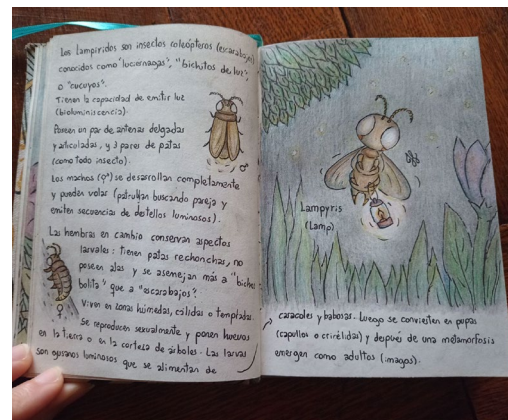 Los lampíridos son insectos coleópteros (escarabajos)
conocidos como "luciérnagas", "bichitos de luz",
o "cucuyos".
Tienen la capacidad de emitir luz
(bioluminiscencia).
Poseen un par de antenas delgadas
y articuladas, y 3 pares de patas
(como todo insecto).
Los machos (♂) se desarrollan completamente
y pueden volar (patrullan buscando pareja y
emiten secuencias de destellos luminosos).
Las hembras en cambio conservan aspectos
larvales: tienen patas rechonchas, no
poseen alas y se asemejan más a "bichos
bolita" que a "escarabajos".
Viven en zonas húmedas, cálidas o templadas.
Se reproducen sexualmente y ponen huevos
en la tierra o en la corteza de árboles. Las larvas
son gusanos luminosos que se alimentan de
♂
♀
Lampyris
(Lamp)
caracoles y babosas. Luego se convierten en pupas
(capullos o crisálidas) y después de una metamorfosis
emergen como adultos (imagos).